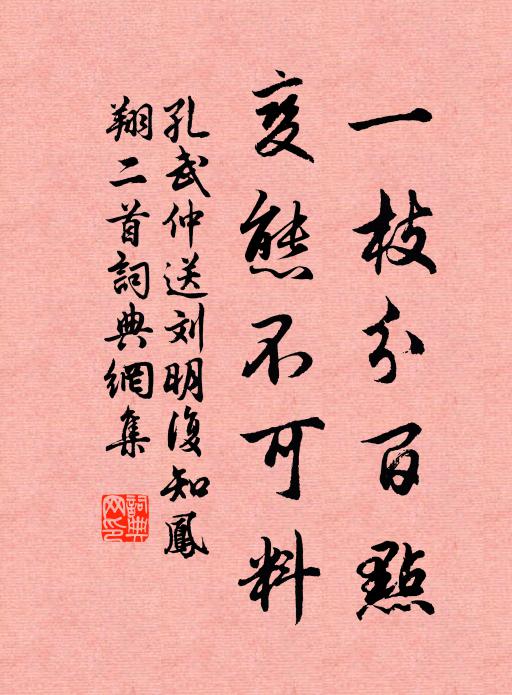 一枝分百點
变態不可料
孔武仲送刘明復知鳳
翔二首詞典網集
詞典網印